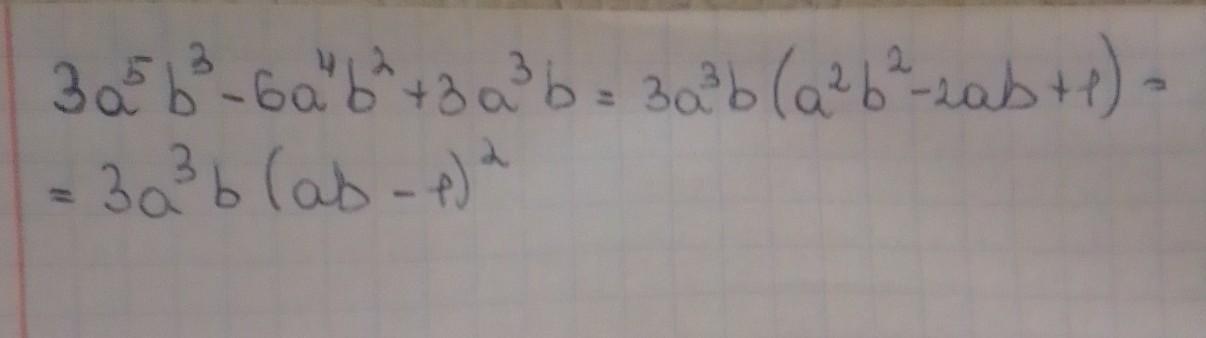 3a⁵b³-6a⁴b²+3a³b=3a³b(a²b²-2ab+1)=
=3a³b(ab-1)²